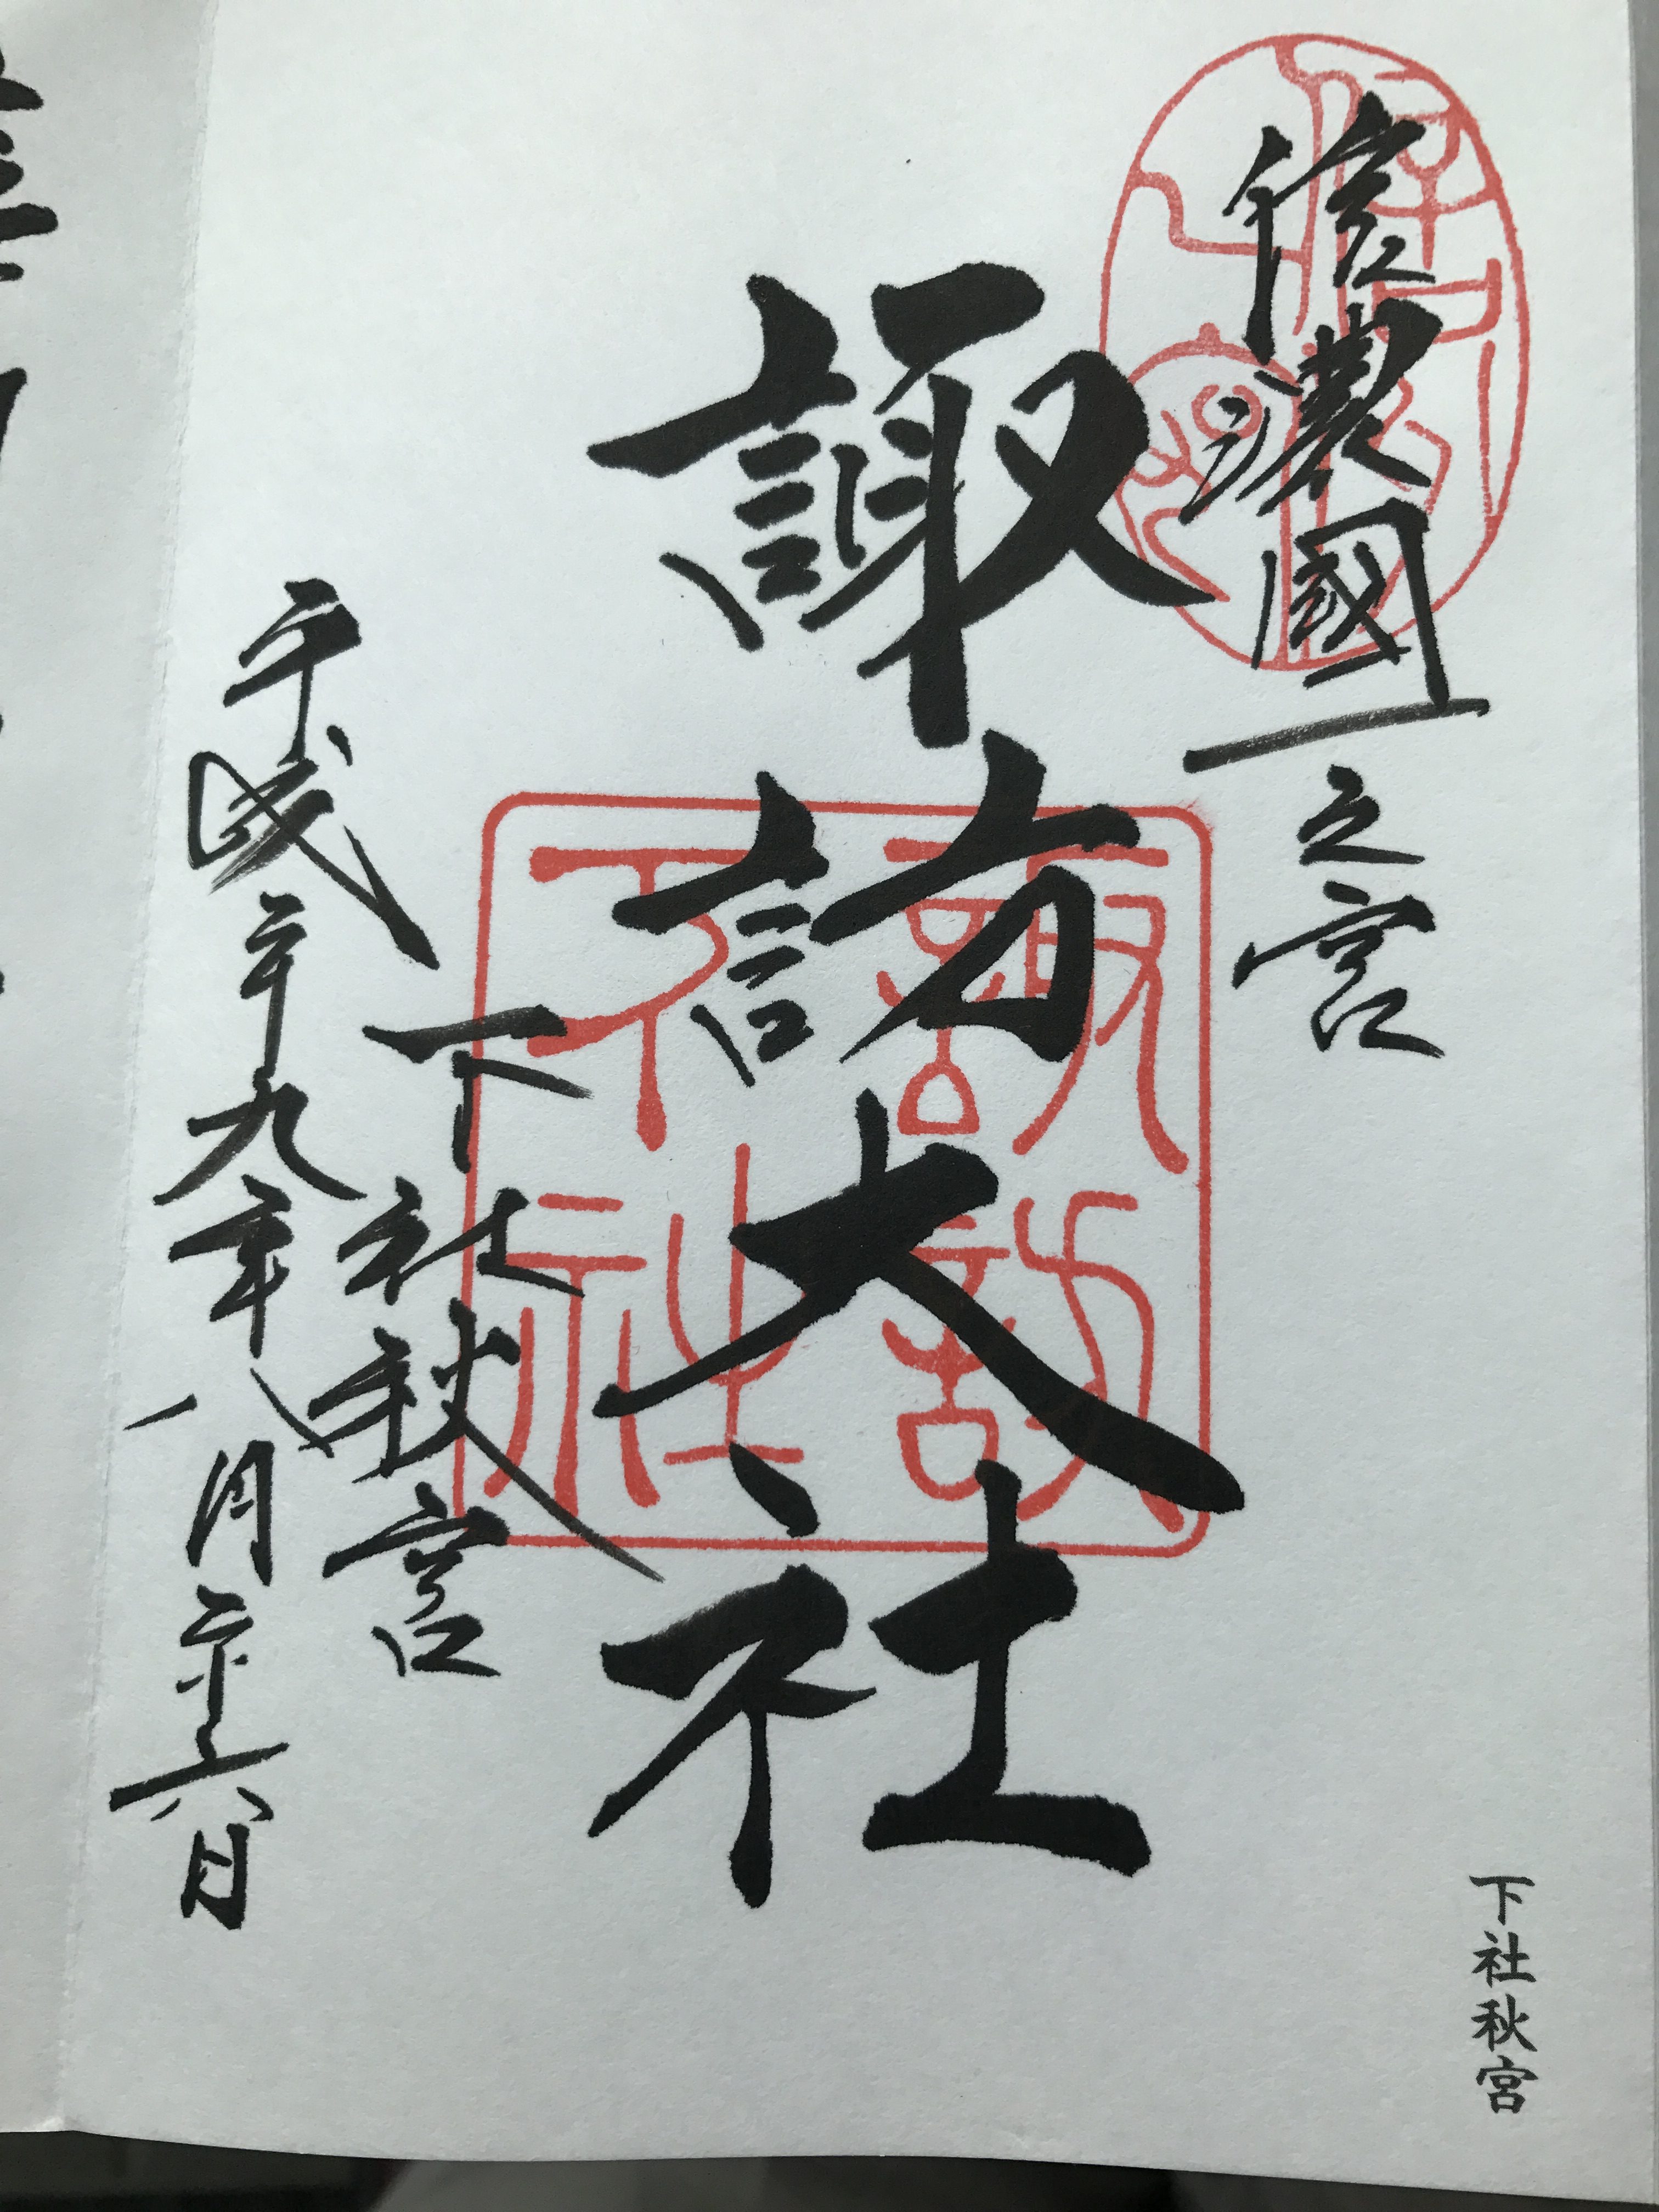 信濃國一之宮
諏訪大社
下社秋宮
平成二十九年八月二十六日
諏訪
下社
下社秋宮